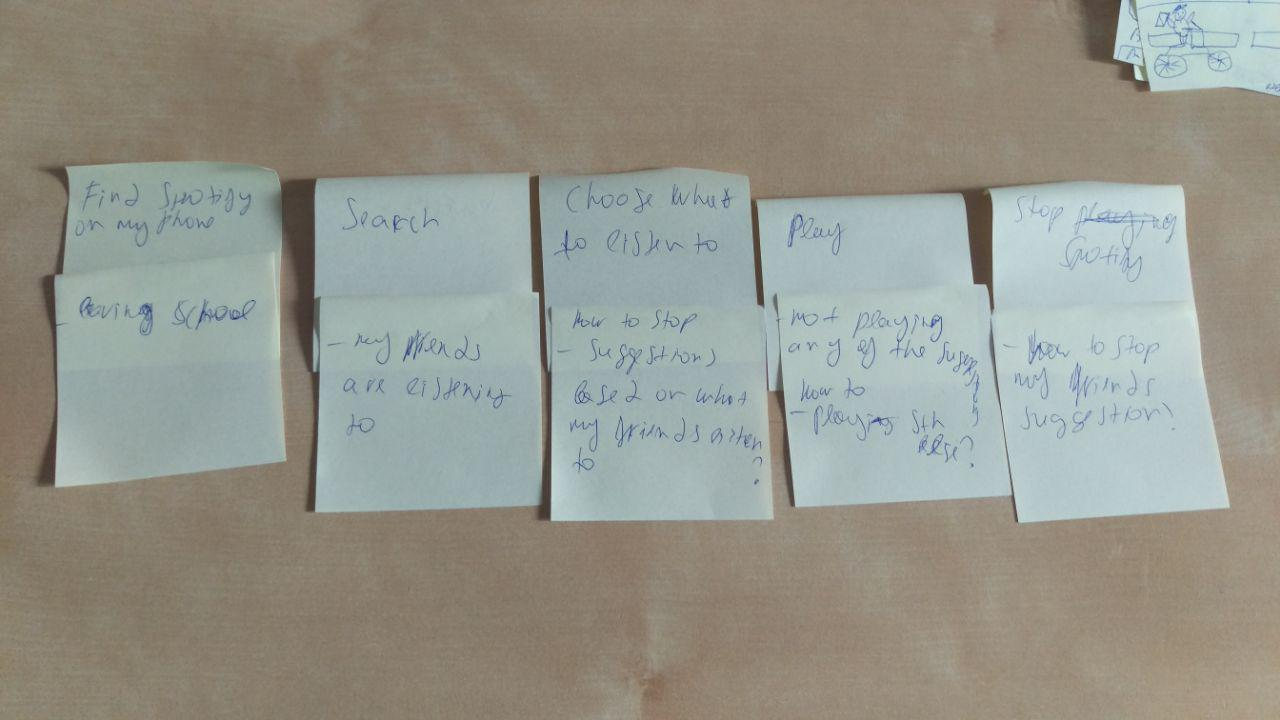 Find Spotify
on my phone
- leaving School
Search
- my friends
are listening
to
Choose what
to listen to
How to stop
- Suggestions
based on what
my friends listen
to ?
Play
- not playing
any of the suggestions
How to
- playing sth
else?
Stop playing
Spotify
- How to stop
my friends
suggestion?